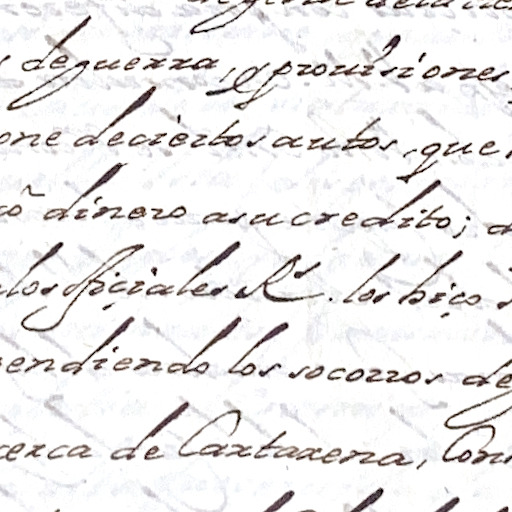 de guerra, y prouisiones
one de ciertos autos, que
dinero a su credito; d
los offiçiales R.s los hiço
endiendo los socorros de
erca de Cartaxena, Con